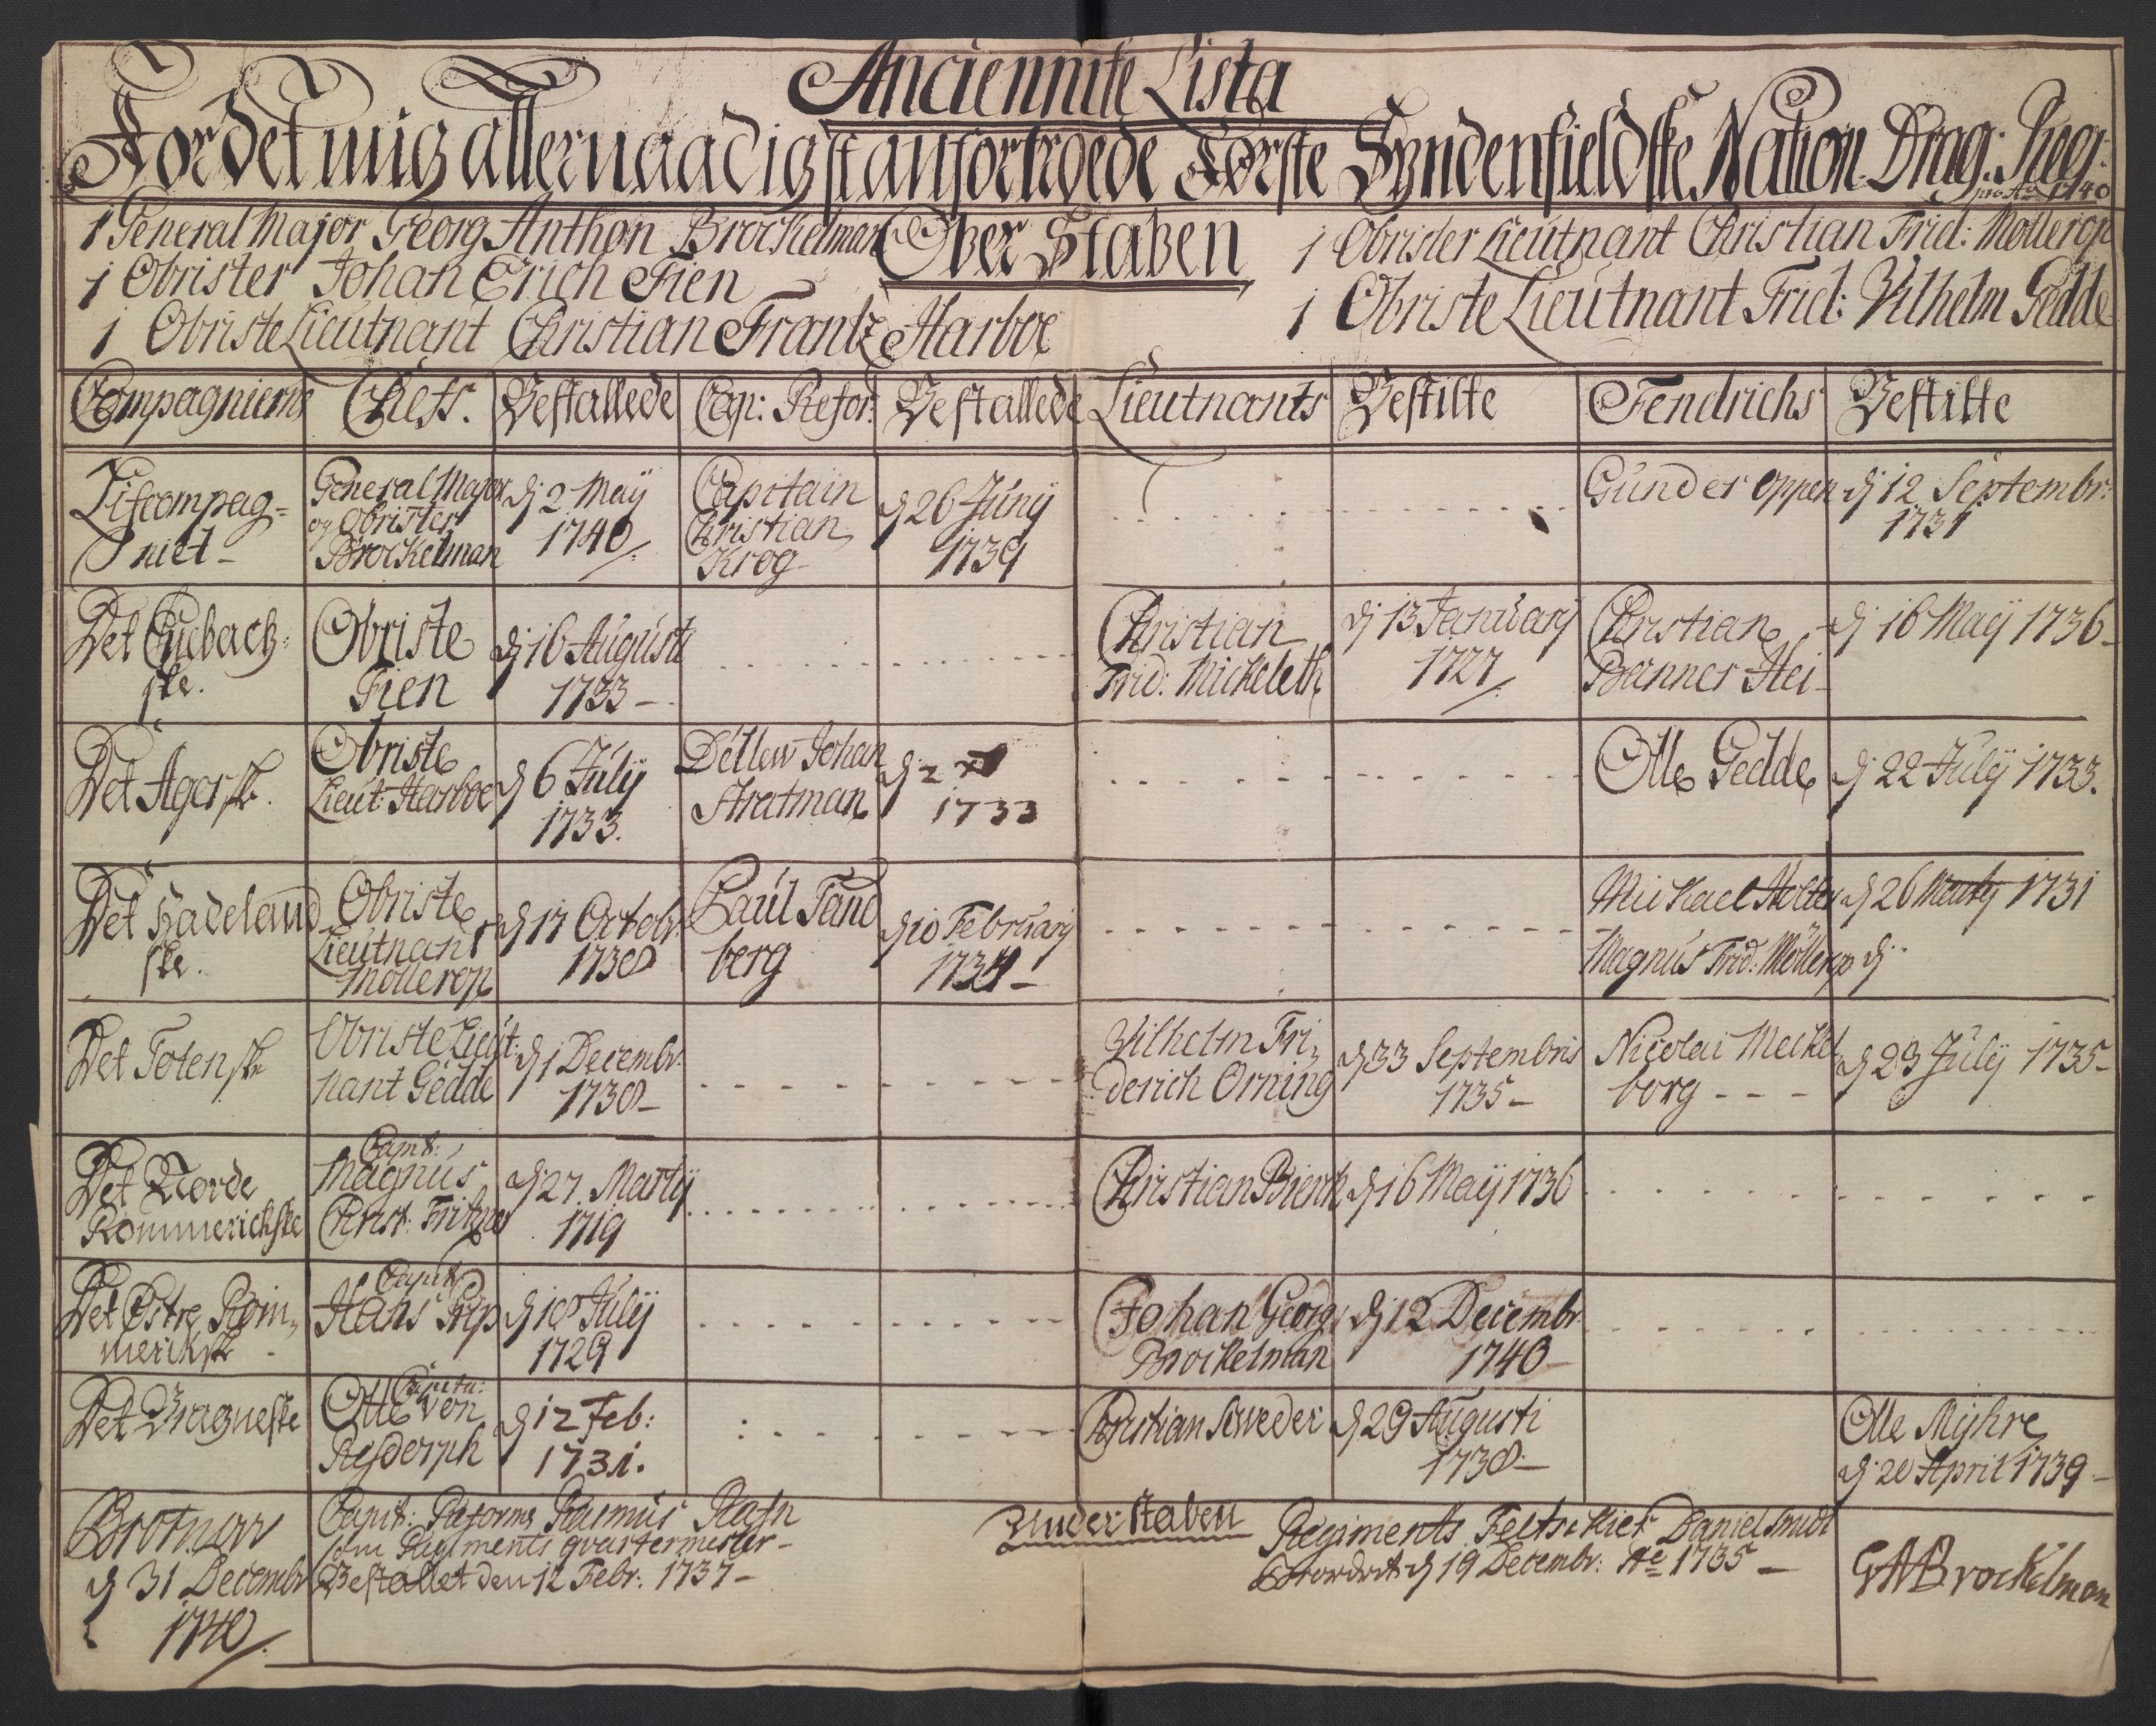 Anciennite Lista
For det mig allernaadigst anfortroede Første Syndenfieldske Nation. Drag: Regi:
pro Ao 1740
1 General Major Georg Anthon Brockelman
Ober Staben
1 Obrister Lieutnant Christian Frid: Mollerop
1 Obrister Johan Erich Fien
1 Obriste Lieutnant Frid: Vilhelm Gedde
1 Obriste Lieutnant Christian Frantz Harboe
Compagnierne Chefs. Bestallede Cap: Refor: Bestallede Lieutnants Bestilte Fendrichs Bestilte
Lifcompag=
niet-
General Major
og Obrister
Brockelman
dj 2 Maÿ
1740
Capitain
Christian
Krog
dj 26 Junÿ
1739
Gunder Oppen
dj 12 Septembr:
1731
Det
ske.
Obriste
Fien
dj 16 Augusti
1733-
Christian
Frid: Mickeleth
dj 13 January
1727
Christian
Banner Hei-
dj 16 Maÿ 1736-
Det Agersk.
Obriste
Lieut: Harboe
dj 6 Julÿ
1733.
Detlew Johan
Stratman
dj 2
1733
Olle Gedde
dj 22 Julÿ 1733.
Det Hadeland
ske.
Obriste
Lieutnant
Mollerop
dj 17 Octobr
1738
Paul Tand
berg
dj 10 February
1734-
Michael Holter
dj 26 Martÿ 1731
Magnus Frid: Möllerop dj
Det Totensk
Obriste Lieut:
nant Gedde
dj 1 Decembr:
1738-
Vilhelm Fri,
derich Orning
dj 33 Septembris
1735-
Nicolai Meckel
borg - - -
dj 23 Julÿ 1735-
Det Nordre
Rommerichske
Capit:
Magnus
Christ: Fritzner
dj 27 Martÿ
1719
Christian Bierck
dj 16 Maÿ 1736
Det Østre Rom,
merichsk
Capit:
Hans Grip
dj 18 Julÿ
1729
Johan Georg
Brockelman
dj 12 Decembr
1740
Det Bragneske
Capitn:
Otte von
Reÿdorph
dj 12 Feb:
1731.
Christian Sehweder
dj 29 Augusti
1738-
Olle Mÿhre
dj 20 April 1739-
dj 31 Decembr
1740
Capit: Reforme Rasmus Rafn
som Regiments qvartermester-
Bestallet den 12 Febr: 1737-
Under Staben
Regiments Feltskier Daniel Smidt
dj 19 Decembr: Ao 1735-
GABrockelman